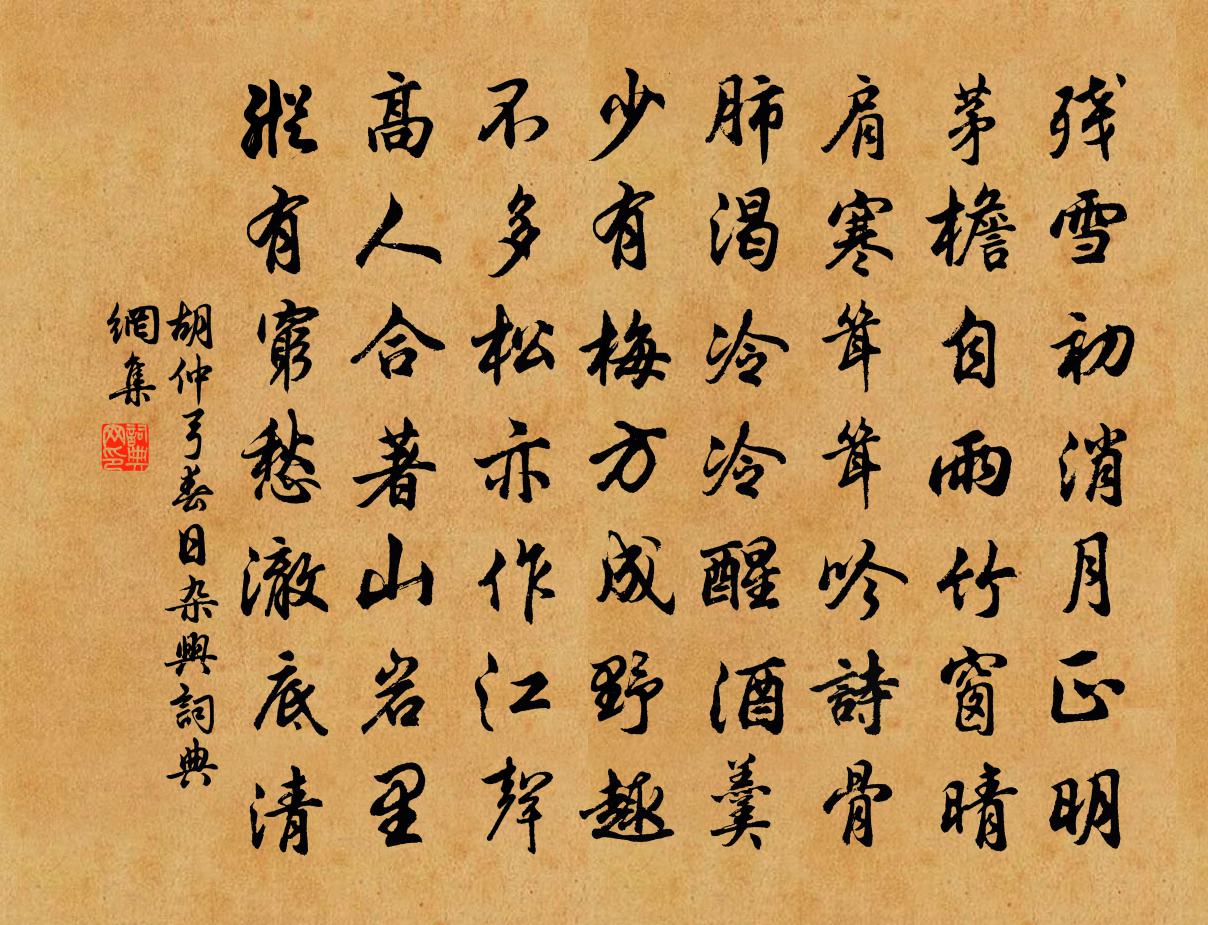 残雪初消月正明
茅檐自雨竹窗晴
肩寒耸耸吟詩骨
肺渴冷冷醒酒羹
少有梅方成野趣
不多松亦作江聲
高人合著山岩里
縱有窮愁澈底清
胡仲弓春日杂興詞典
網集
詞典网印